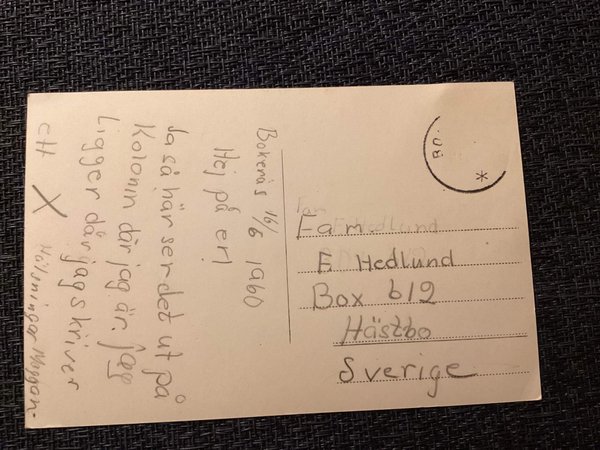 Bokenäs 16/6 1960
Hej på er!
Ja så här ser det ut på
Kolonin där jag är. Jag
Ligger där jag skriver
ett X Hälsningar
Fam
E Hedlund
Box 612
Hästbo
Sverige